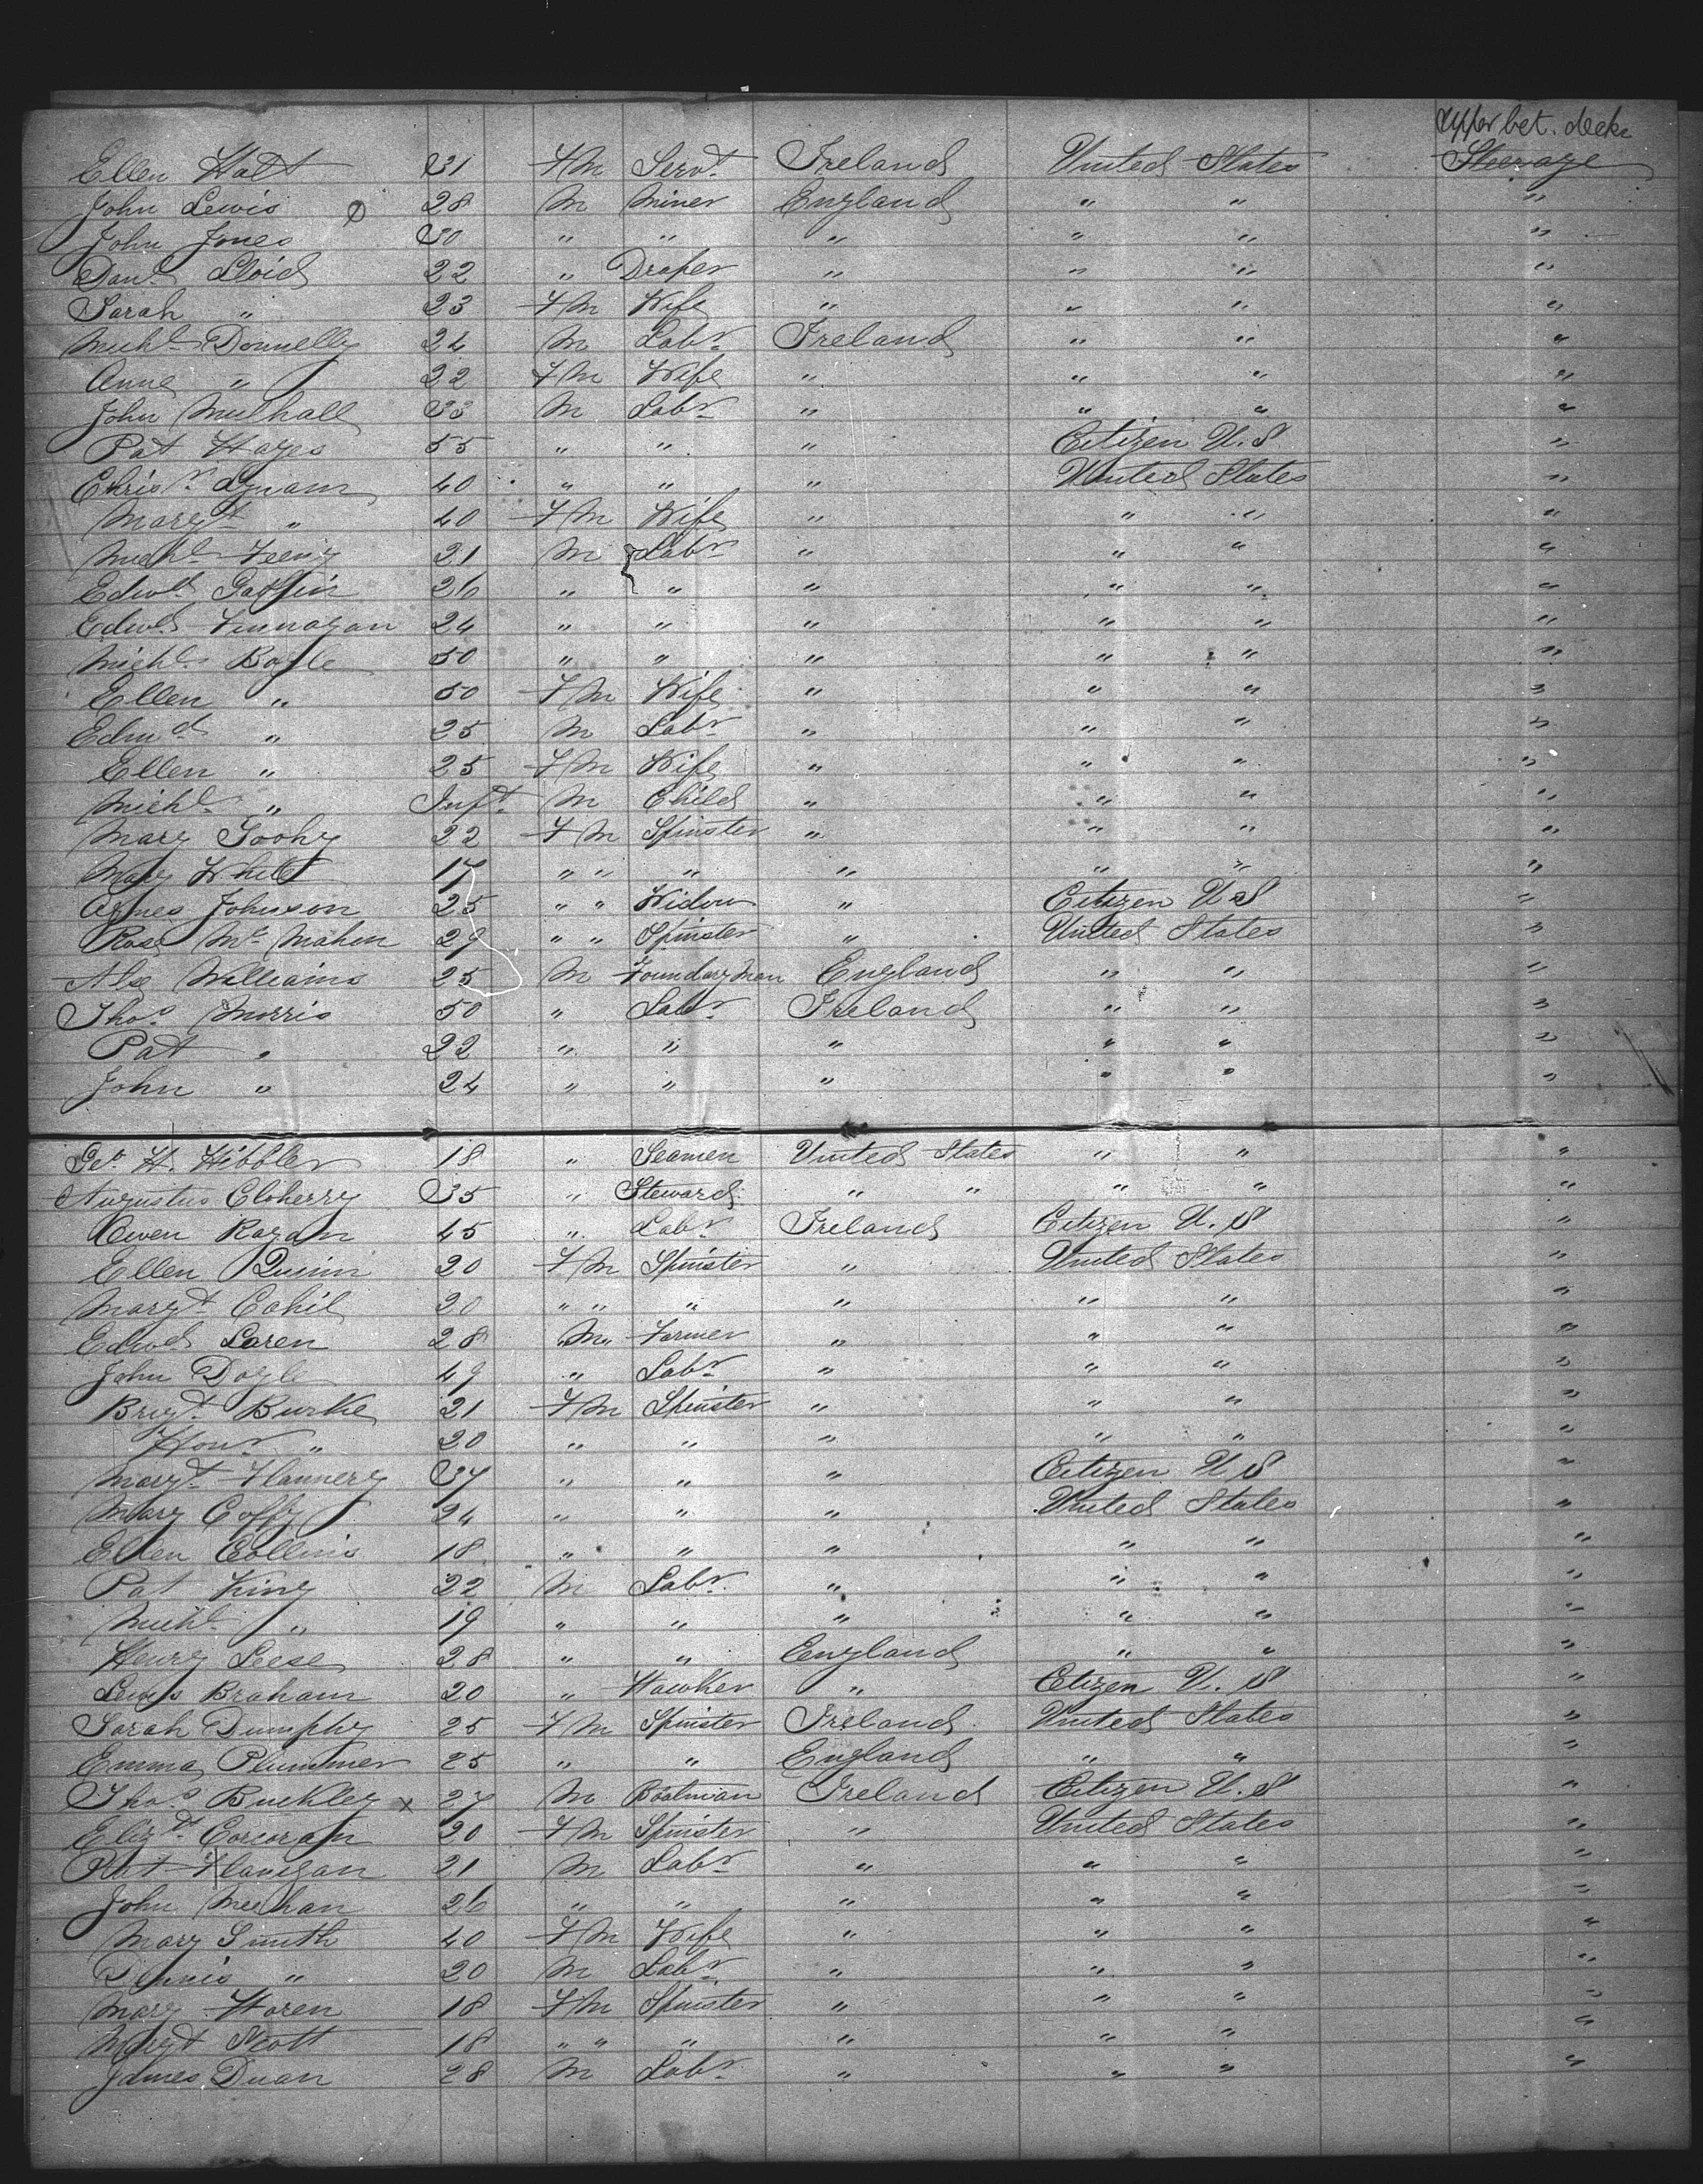 Upper bet. decks
Ellen Halt 31 Fm Servt Ireland United States Steerage
John Lewis 28 M Miner England " " "
John Jones 30 " " " " " "
Danl Lloid 22 " Draper " " " "
Sarah " 23 Fm Wife " " " "
Michl Donnelly 24 M Labr Ireland " " "
Anne " 22 Fm Wife " " " "
John Mulhall 33 M Labr " " " "
Pat Hayes 55 " " " Citizen U.S "
Chrisr Lynam 40 " " " United States "
Margt " 40 Fm Wife " " " "
Michl Feeny 21 M Labr " " " "
Edwd 26 " " " " " "
Edwd Finnagan 24 " " " " " "
Michl Boyle 50 " " " " " "
Ellen " 50 Fm Wife " " " "
Edmd " 25 M Labr " " " "
Ellen " 25 Fm Wife " " " "
Michl " Inft M Child " " " "
Mary Toohy 22 Fm Spinster " " " "
Mary White 17 " " " " " " "
Agnes Johnson 25 " " Widow " Citizen U S "
Rose Mc Mahon 29 " " Spinster " United States "
Alx Williams 25 M Foundary Man England " " "
Thos Morris 50 " Labr Ireland " " "
Pat " 22 " " " " " "
John " 24 " " " " " "
Geo. H. Hibbler 18 " Seamen United States " " "
Augustus Cloherry 35 " Steward " " " " "
Owen Ragan 45 " Labr Ireland Citizen U. S "
Ellen Quinn 20 Fm Spinster " United States "
Margt Cahil 20 " " " " " " "
Edwd Loren 28 M Farmer " " " "
John Doyle 49 " Labr " " " "
Brigt Burke 21 Fm Spinster " " " "
Honr " 20 " " " " " "
Margt Flannery 37 " " " Citizen U S "
Mary Coffy 24 " " " United States "
Ellen Collins 18 " " " " " "
Pat King 22 M Labr " " " "
Michl " 19 " " " " " "
Henry Leese 28 " " England " " "
Lewis Braham 20 " Hawker " Citizen U. S "
Sarah Dumphy 25 Fm Spinster Ireland United States "
Emma Plummer 25 " " England " " "
Thos Buckley x 27 M Boatman Ireland Citizen U. S "
Elizth Corcoran 20 Fm Spinster " United States "
Pat Flanigan 21 M Labr " " " "
John Meehan 26 " " " " " "
Mary Smith 40 Fm Wife " " " "
Dennis " 20 M Labr " " " "
Mary Horen 18 Fm Spinster " " " "
Margt Scott 18 " " " " " " "
James Duan 28 M Labr " " " "